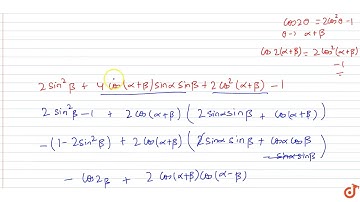 cos2θ = 2cos²θ-1
θ → α+β
cos2(α+β) = 2cos²(α+β)
-1
=
2sin²β + 4cos(α+β)sinαsinβ + 2cos²(α+β) - 1
2sin²β-1 + 2cos(α+β) (2sinαsinβ + cos(α+β))
-(1-2sin²β) + 2cos(α+β) (2sinαsinβ + cosαcosβ
-sinαsinβ)
- cos2β + 2cos(α+β)cos(α-β)